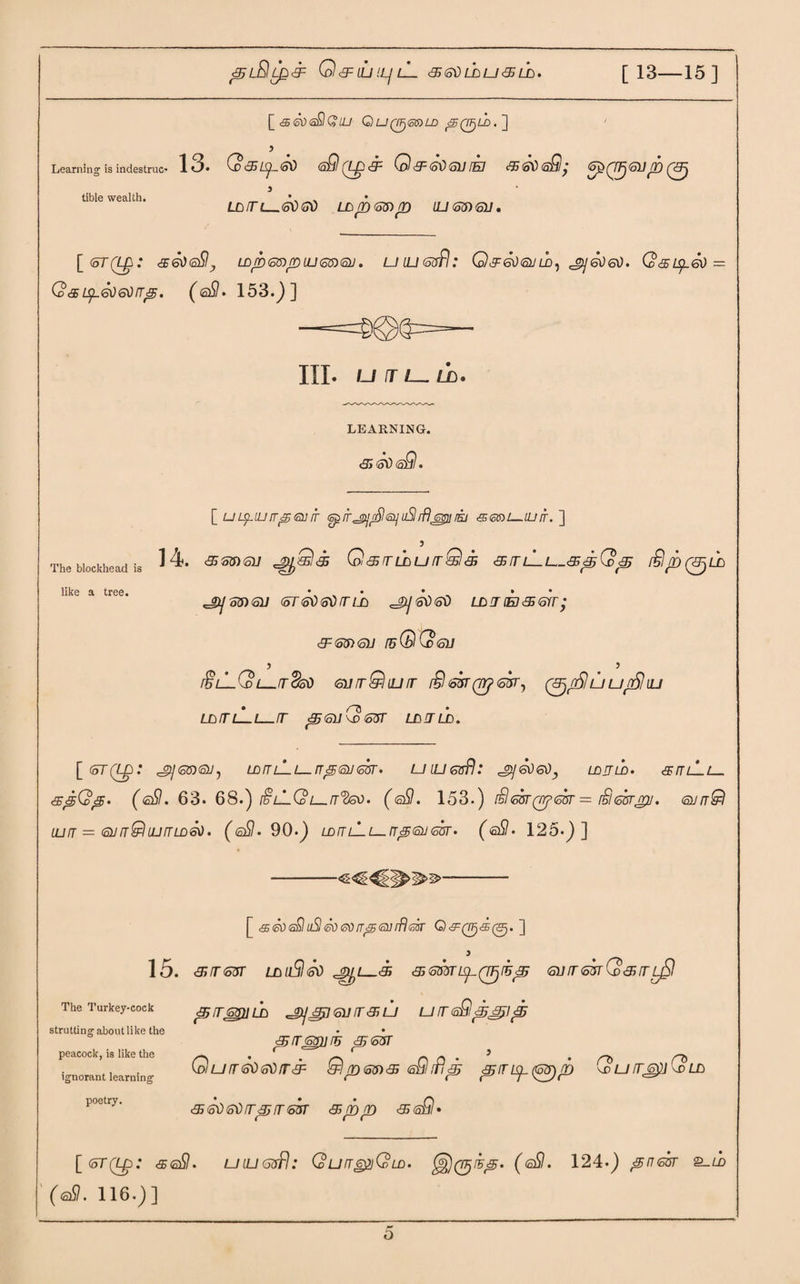 தமிழ்ச் செய்யுட் கலம்பகம். [ 13—15 ]
[ கல்வியே பெருமை தரும். ]
Learning is indestruc- 13. கேடில் விழுச் செல்வங் கல்வி; ஒருவற்கு
tible wealth. மாடல்ல மற்றை யவை.
[ எழு: கல்வி, மற்றையவை. பயனி: செல்வம், அல்ல. கேடில் =
கேடில்லாத. (வி. 153.) ]
III. பாடம்.
LEARNING.
கல்வி.
[ படியாதவர் ஓர்அறிவுயிரினுங் கடையர். ]
The blockhead is 14. கவை ஆகிக் கொம்பாகிக் காட்டகத்தே நிற்கும்
like a tree. அவை எல்லாம் அல்ல மரங்கள்;
சவை நடுவே
நீட்டோலை வாசியா நின்றான், குறிப்பறிய
மாட்டா தவனே மரம்.
[ எழு: அவை, மாட்டாதவன். பயனி: அல்ல, மரம். காட்ட
கத்தே. (வி. 63. 68.) நீட்டோலை. (வி. 153.) நின்றான் = நின்று. வாசி
யா = வாசியாமல். (வி. 90.) மாட்டாதவன். (வி. 125.) ]
[ கல்வியில்லாதவரின் செருக்கு. ]
15. கான மயில் ஆடக் கண்டிருந்த வான்கோழி
The Turkey-cock தானும் அதுவாகப் பாவித்துத்
strutting about like the தானுந் தன்
peacock, is like the பொல்லாச் சிறகை விரித் தாடினாற் போலுமே
ignorant learning
poetry. கல்லாதான் கற்ற கவி.
[ எழு: கவி. பயனி: போலுமே. இருந்த. (வி. 124.) தான் உம்
(வி. 116.)]
5